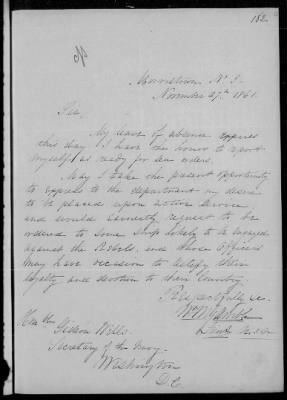 182.
Morristown N. J.
November 27th 1861.
Sir,
My leave of absence expires
this day, I have the honor to report
myself as ready for sea orders.
May I take the present opportunity
to express to the department my desire
to be placed upon active service
and would earnestly request to be
ordered to some ship likely to be engaged
against the Rebels, and whose officers
may have occasion to testify their
loyalty and devotion to their Country.
Respectfully &c.
Lieut.
Hon Gideon Wells.
Secretary of the Navy.
Washington
D.C.